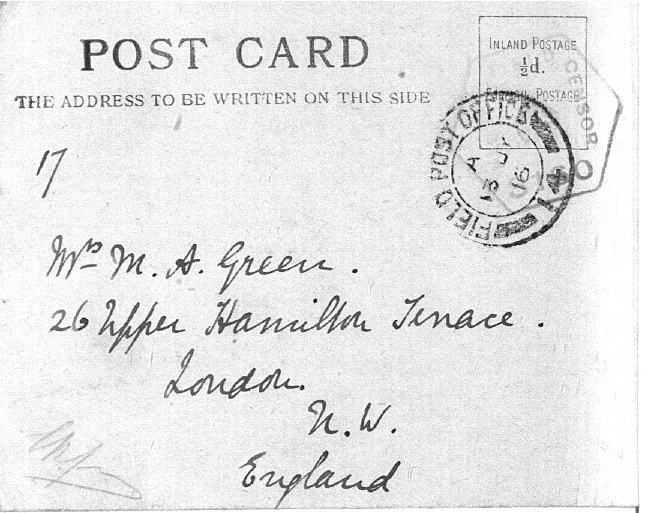 POST CARD
THE ADDRESS TO BE WRITTEN ON THIS SIDE
INLAND POSTAGE
½d.
POSTAGE
CENSOR
FIELD POST OFFICE
A
13
16
17
Mrs M. A. Green.
26 Upper Hamilton Terrace.
London.
N. W.
England